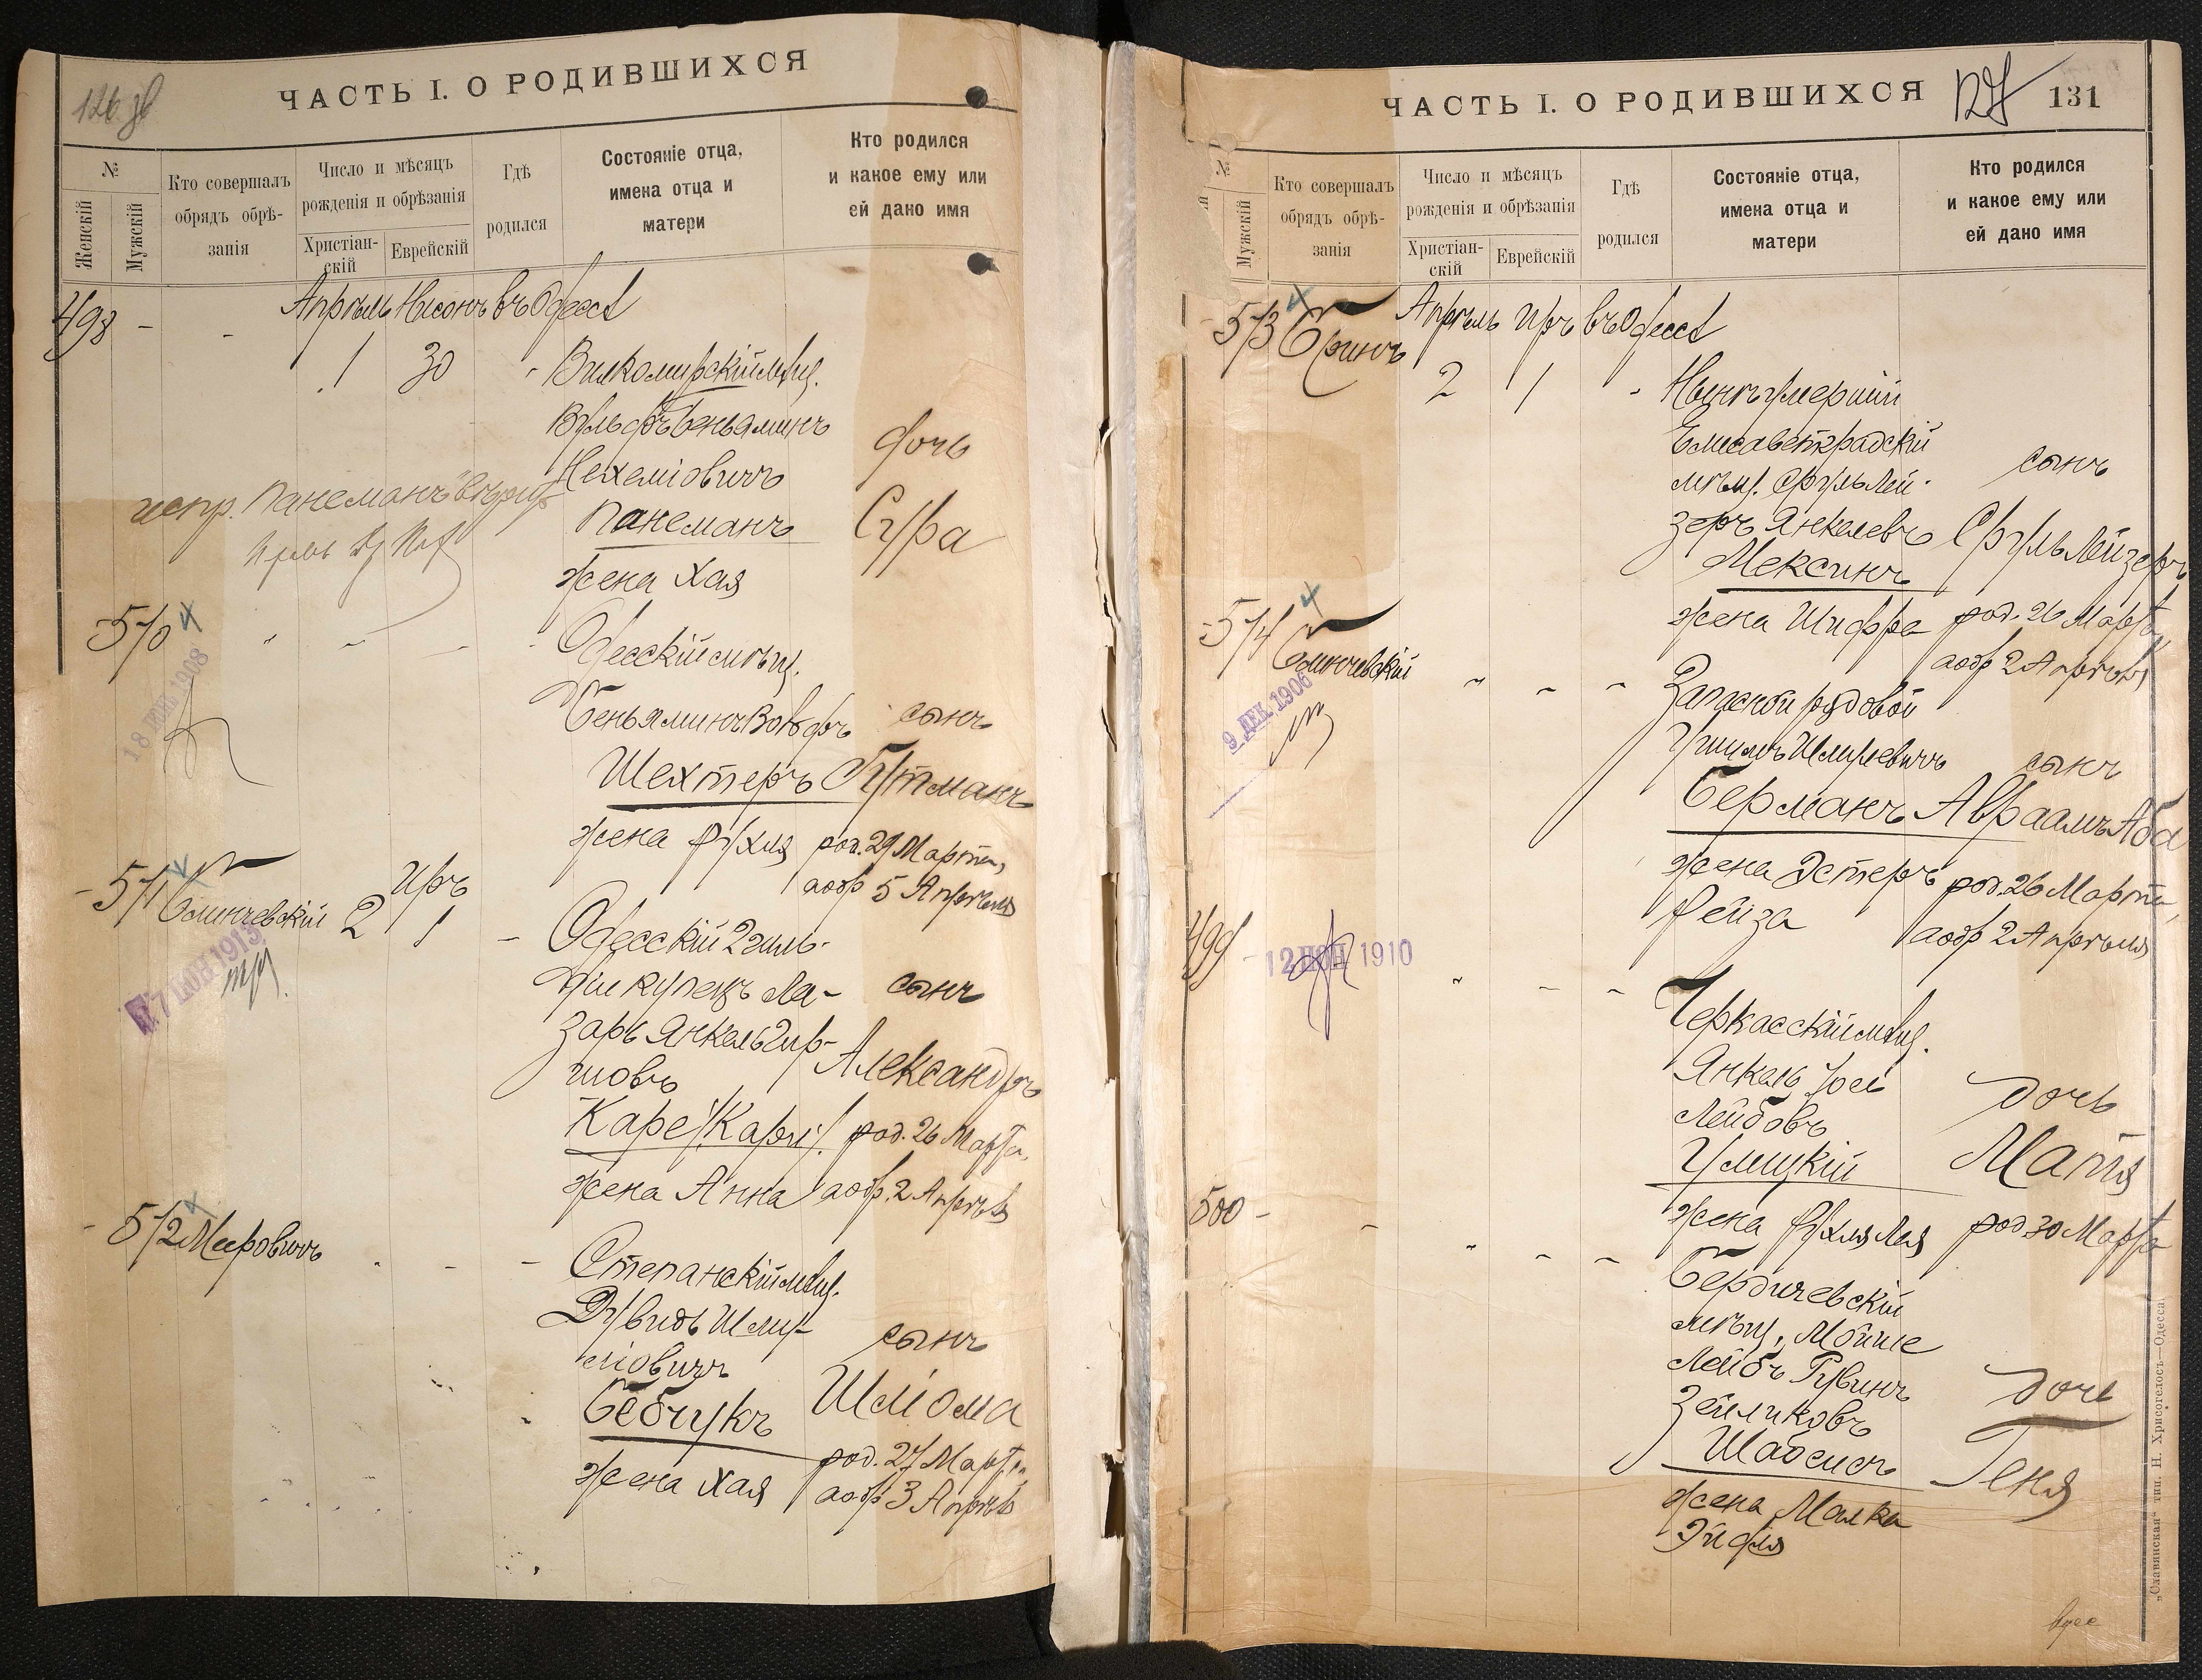 126 об
ЧАСТЬ I. О РОДИВШИХСЯ
№
Женскій
Мужскій
Кто совершалъ
обрядъ обрѣ-
занія
Число и мѣсяцъ
рожденія и обрѣзанія
Христіан-
скій
Еврейскій
Гдѣ
родился
Состояніе отца,
имена отца и
матери
Кто родился
и какое ему или
ей дано имя
498 - - Апрѣль Нисонъ въ Одессѣ
1 30 - Вилкомирскій мѣщ.
Вульфъ Беньяминъ
Нехеміовичъ
Панеманъ
жена Хая
дочь
Сура
испр. Панеманъ
510 Одесскій мѣщ.
Беньяминъ Вольфъ
Шехтеръ
жена Рухля
сынъ
Гутманъ
род. 29 Марта,
а обр 5 Апрѣля
511 Слинчевскій 2 Иръ 1 - Одесскій 2 гиль-
діи купецъ Ла-
зарь Янкель Гир-
шовъ
Каре /Карпі/.
жена Анна
сынъ
Александръ
род. 26 Марта,
а обр. 2 Апрѣля
17 НОЯ 1913
512 Мееровичъ - - - Степанскій мѣщ.
Дувидъ Шлу-
міовичъ
Бебчукъ
жена Хая
сынъ
Шлёма
род. 27 Марта,
а обр 3 Апрѣля
ЧАСТЬ I. О РОДИВШИХСЯ
127
131
№
Мужскій
Кто совершалъ
обрядъ обрѣ-
занія
Число и мѣсяцъ
рожденія и обрѣзанія
Христіан-
скій
Еврейскій
Гдѣ
родился
Состояніе отца,
имена отца и
матери
Кто родился
и какое ему или
ей дано имя
513 Апрѣль Иръ въ Одессѣ
2 1 - Нынѣ умершій
Елисаветградскій
мѣщ. Сруль Лей-
зеръ Янкелевъ
Мексинъ
жена Шифра
сынъ
Сруль Лейзеръ
род. 26 Марта,
а обр 2 Апрѣля
514 Слинчевскій - - - Запасной рядовой
Гришмъ Шмулевичъ
Берманъ
жена Эстеръ
Рейза
сынъ
Авраамъ Аба
род. 26 Марта,
а обр 2 Апрѣля
9 ДЕК 1906
499 - Черкасскій мѣщ.
Янкель Іось
Лейбовъ
Улицкій
жена Рухля Лея
дочь
Матя
род 30 Марта
1910
500 - - - - - Бердичевскій
мѣщ. Мойше
Лейбъ Рувинъ
Зейликовъ
Шабсисъ
жена Малка
Эйдля
дочь
Геня
„Славянская“ тип. Н. Хрисогелосъ—Одесса.